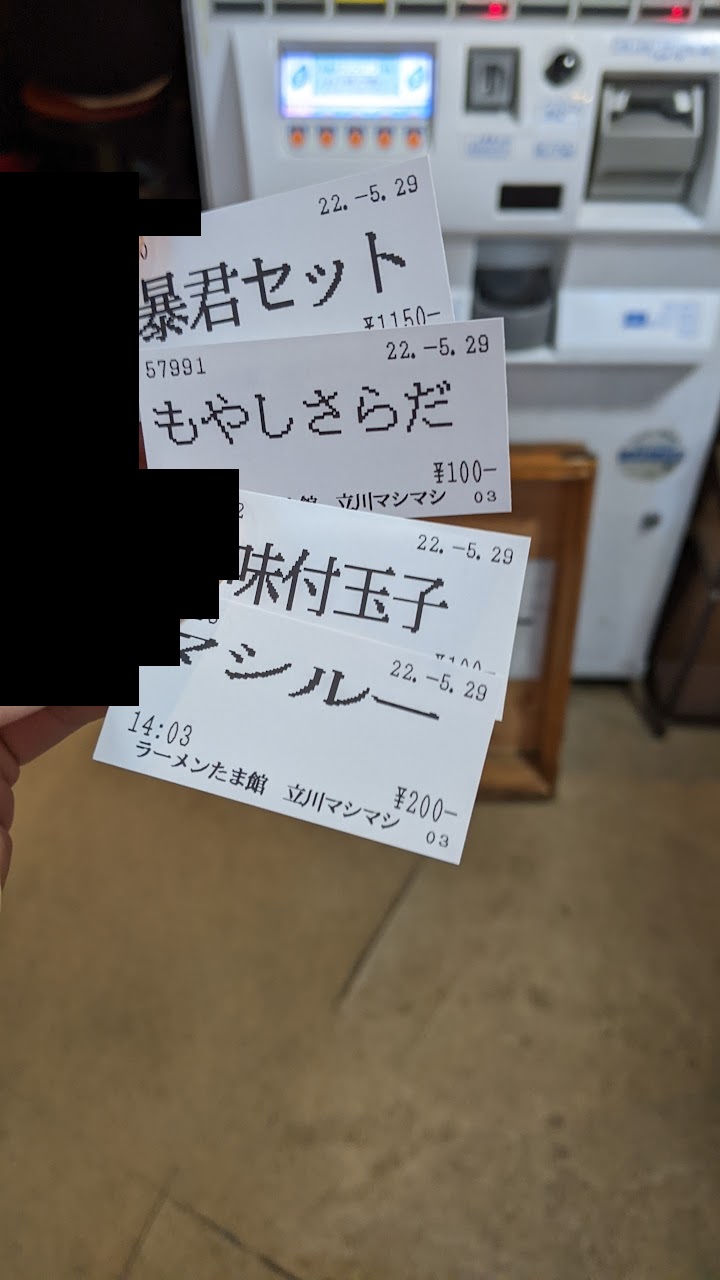 22.-5.29
暴君セット
¥1150-
57991
22.-5.29
もやしさらだ
¥100-
立川マシマシ 03
22.-5.29
味付玉子
¥100-
22.-5.29
マシルー
14:03
¥200-
ラーメンたま館 立川マシマシ 03